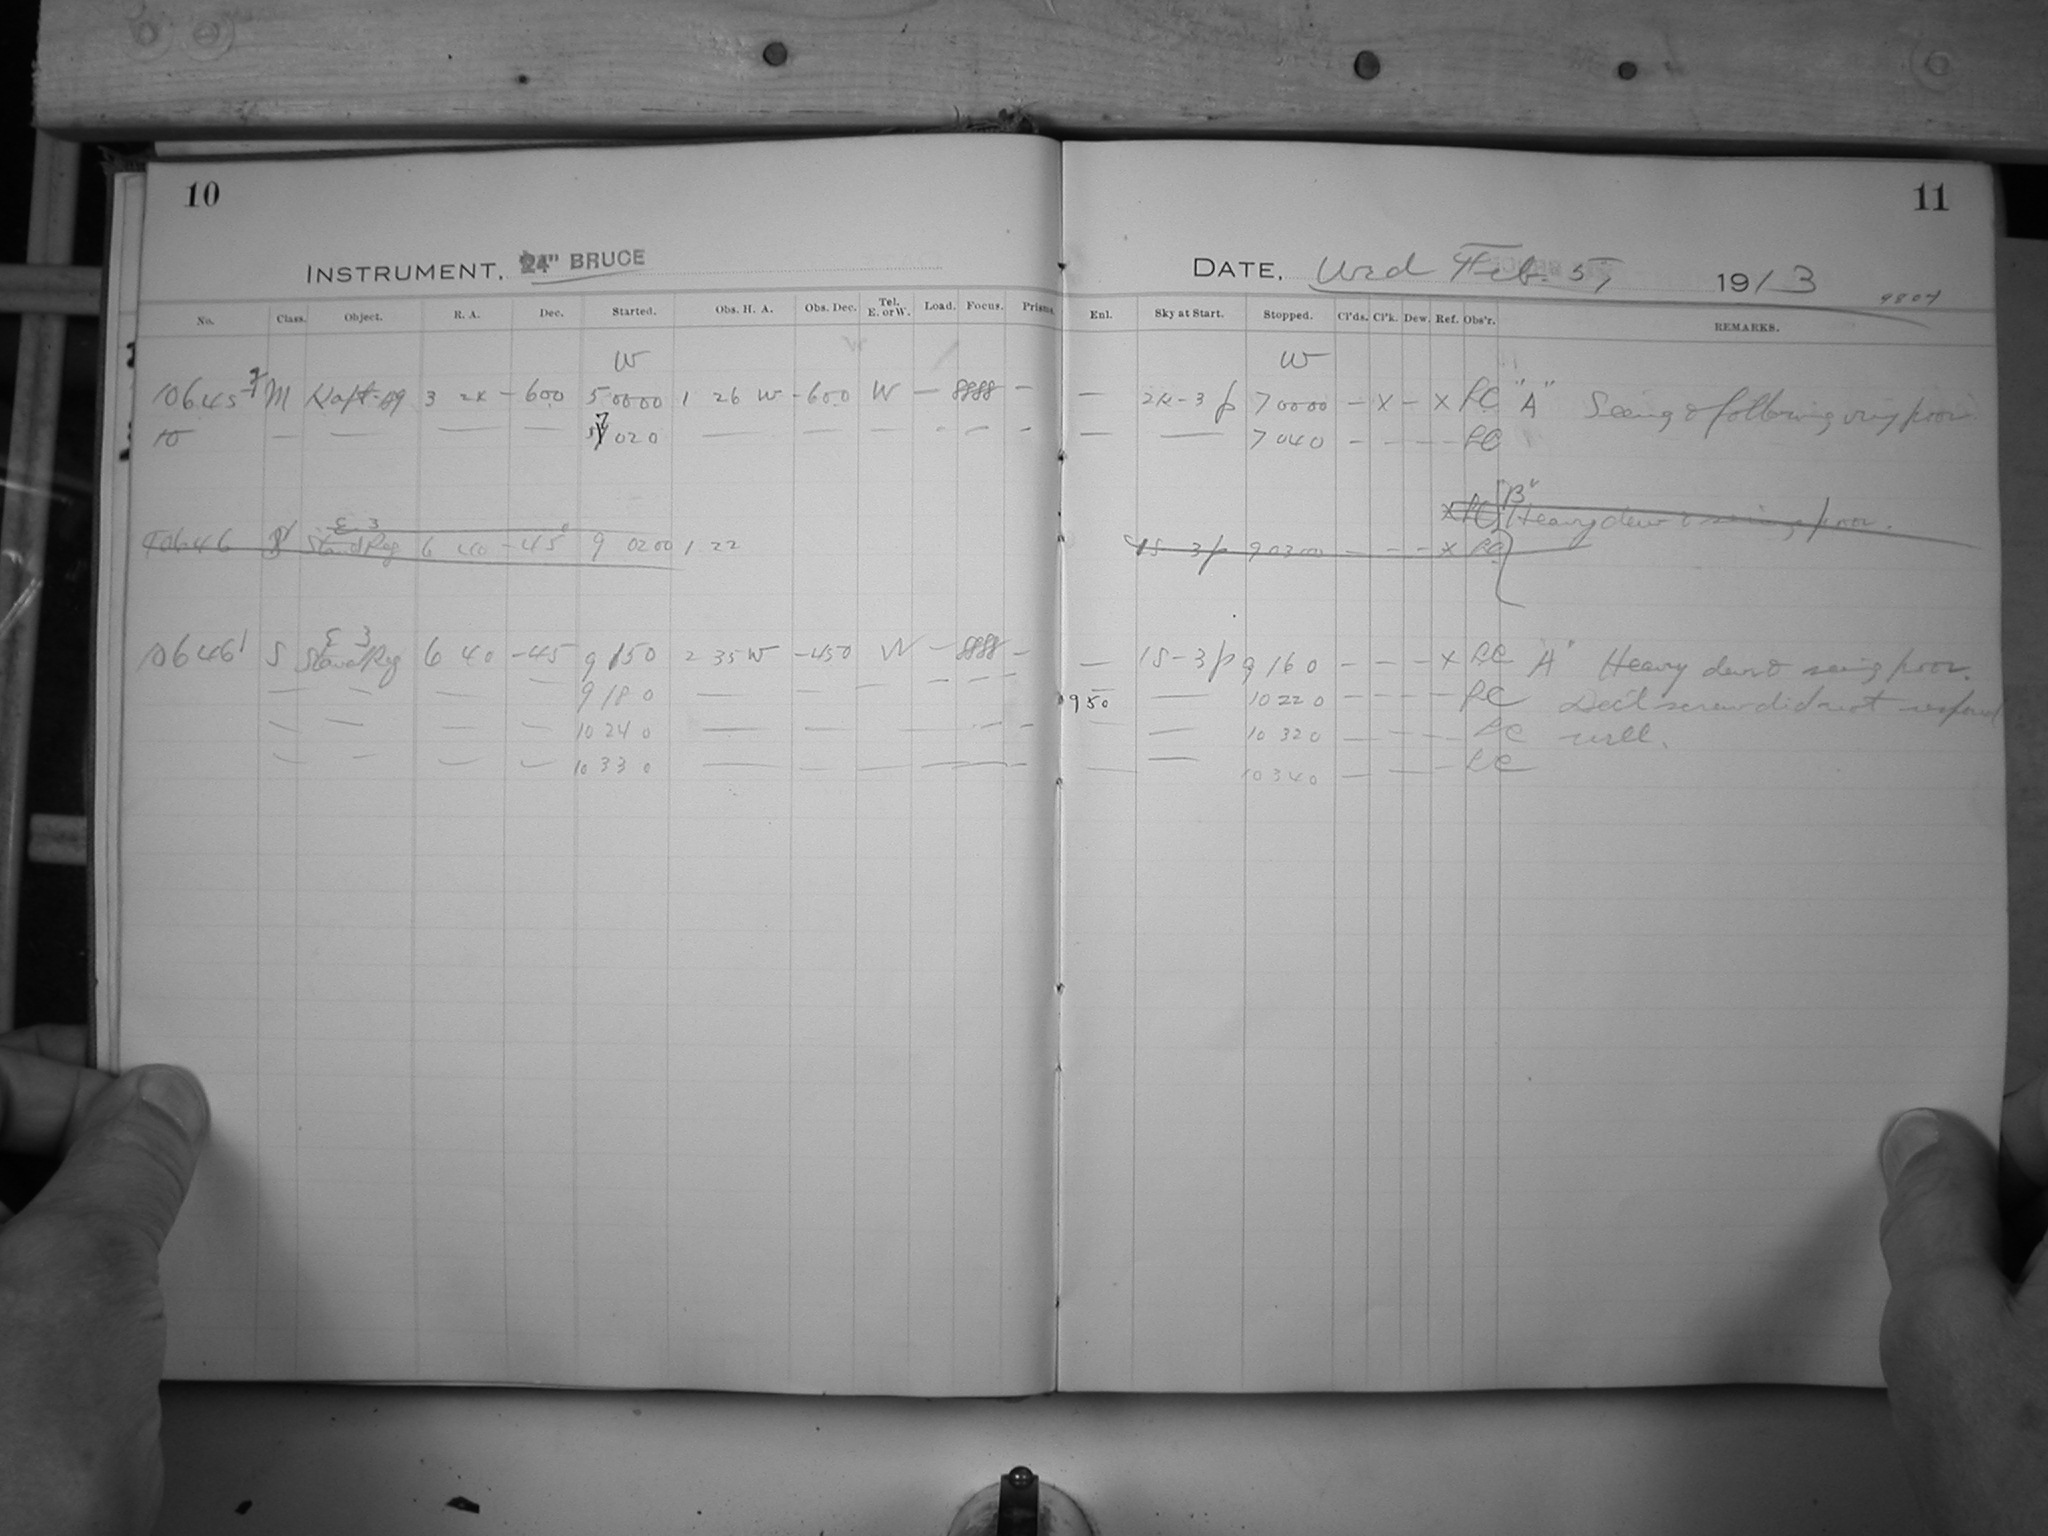 10
11
INSTRUMENT, 24" BRUCE
DATE, Wed Feb. 5, 1913
9804
No. Class. Object. R. A. Dec. Started. Obs. H. A. Obs. Dec. Tel. E. or W. Load. Focus. Prisms.
Enl. Sky at Start. Stopped. Cl'ds. Cl'k. Dew. Ref. Obs'r. REMARKS.
W W
10645 M 3 - 600 5 0000 1 26 W - 600 W — 8888 — — 7 0000 — X — X "A" Seeing & following very poor
— — — — 020 — — — — — — — — 7 040 — — — —
"B"
X Heavy dew & seeing poor.
10646 Stand Reg 6 40 - 45 9 0200 1 22 15 - 3 p 9 0300 — — — X
10646 S Stand Reg 6 40 - 45 9 150 2 35 W - 450 W — 8888 — — 15 - 3 p 9 160 — — — X "A" Heavy dew & seeing poor.
— — — — 9 180 — — — — — — 950 — 10 220 — — — — Dec'l screw did not respond
— — — — 10 240 — — — — — — — 10 320 — — — — well.
— — — — 10 330 — — — — — — — — 10 340 — — — —